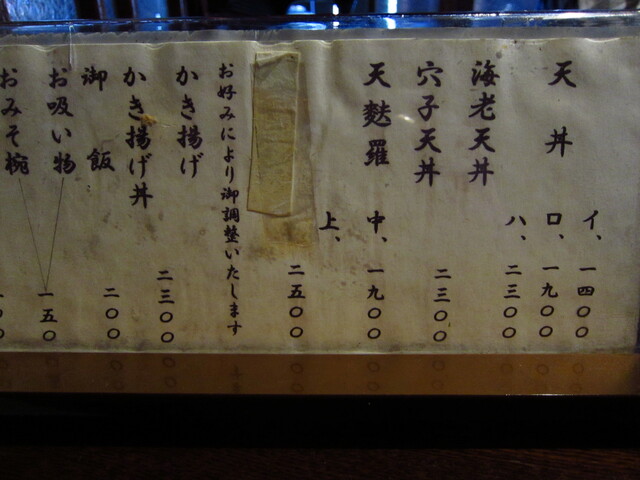 イ、一四〇〇
天丼 ロ、一九〇〇
ハ、二三〇〇
海老天丼
穴子天丼 二三〇〇
天麩羅 中、一九〇〇
上、二五〇〇
お好みにより御調整いたします
かき揚げ
かき揚げ丼 二三〇〇
御飯 二〇〇
お吸い物 一五〇
おみそ椀